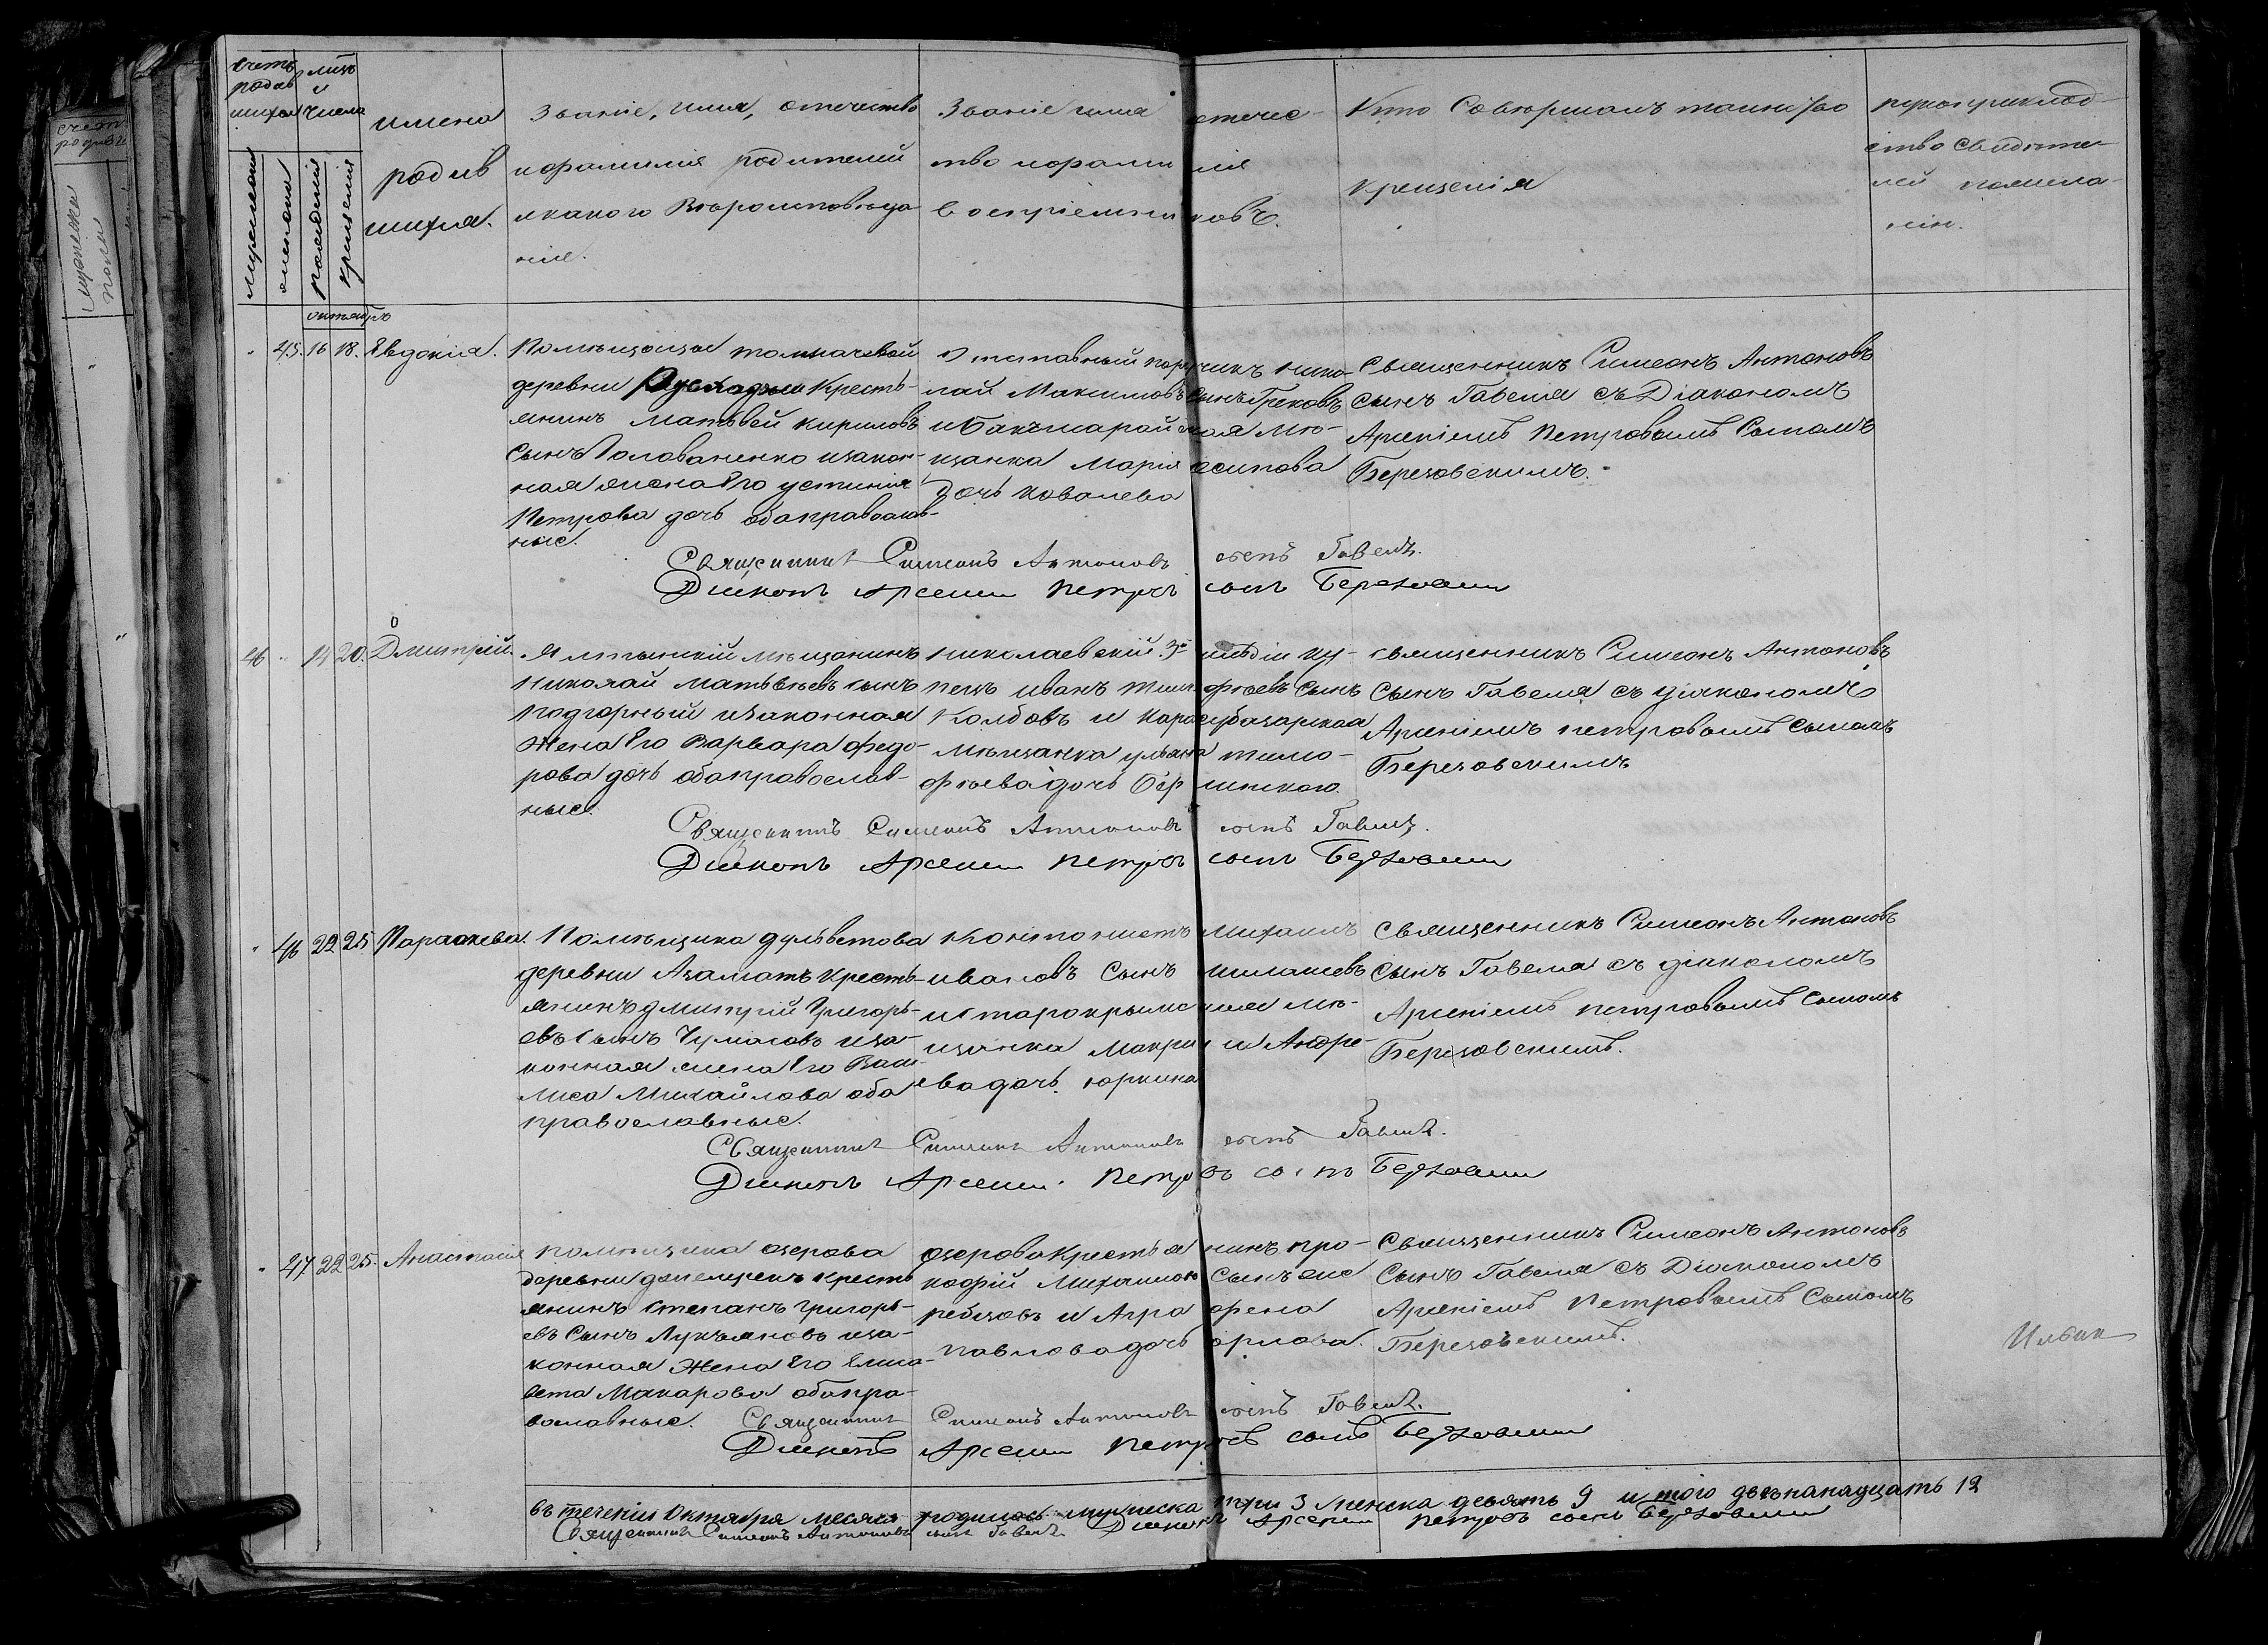 счетъ
родив
шихся
мсцъ
и
числа
мужеска
женска
рождения
крещения
имена
родив
шихся.
Званіе, имя, отечество
и фамилія родителей
и какого вероисповеда
нія.
Званіе имя отечес-
тво и фамилія
воспріемниковъ.
Кто Совершалъ таинство
крещенія
рукоприклад-
ство свидете-
лей
счет
родивш
мужеска
пола
октябрь
45. 16 18. Евдокія.
Помещицы
деревни кресть-
янинъ Матвей Кириловъ
сынъ Голованенко изакон-
ная жена Его устинія
Петрова дочь обаправослав-
ные.
Отставный поручикъ Нико-
лай Максимовъ сынъ Грековъ
мѣ-
щанка Марія осипова
дочь Ковалева
Священникъ Симеонъ Антоновъ
сынъ Гавеля съ Діакономъ
Арсеніемъ Петровымъ Сыномъ
Березовскимъ.
Священникъ Симеонъ Антоновъ сынъ Гавеля.
Діаконъ Арсений Петровъ сынъ Березовский
46 14 20. Дмитрій.
Ялтынскій мещанинъ
Николай Матвеевъ сынъ
Подгорный изаконная
Жена Его Варвара федо-
рова дочь обаправослав-
ные.
Николаевский 3й гильдіи ку-
пецъ Иванъ Тимофеевъ Сынъ
Колбовъ и Карасубазарская
Мещанка ульяна тимо-
феева дочь
священникъ Симеонъ Антоновъ
Сынъ Гавеля съ діакономъ
Арсеніемъ петровымъ сыномъ
Березовскимъ
Священникъ Симеонъ Антоновъ сынъ Гавеля.
Діаконъ Арсений Петровъ сынъ Березовский
46 22 25 Параскева.
Помещика
деревни Азаматъ кресть-
янинъ дмитрій Григорь-
евъ сынъ Чумаковъ иза-
конная жена Его Васи
лиса Михайлова оба
православные.
Михаилъ
ивановъ сынъ
истарокрымская мѣ-
щанка и Андре-
ева дочь юркина
священникъ Симеонъ Антоновъ
сынъ Гавеля съ діакономъ
Арсеніемъ петровымъ Сыномъ
Березовскимъ.
Священникъ Симеонъ Антоновъ сынъ Гавеля.
Діаконъ Арсений Петровъ сынъ Березовский
47 22 25. Анастасія
помещика озерова
деревни кресть
янинъ степанъ григорь-
евъ Сынъ Лукъяновъ иза-
конная Жена Его Елиса-
вета Макарова обапра-
вославные.
озерова крестьянинъ про-
кофій Михаиловъ Сынъ же
ребцовъ и Аграфена
павлова дочь орлова.
Священникъ Симеонъ Антоновъ
Сынъ Гавеля съ Діакономъ
Арсеніемъ Петровымъ Сыномъ
Березовскимъ.
Священникъ Симеонъ Антоновъ сынъ Гавеля.
Діаконъ Арсений Петровъ сынъ Березовский
въ теченіи Октября месяца родилось мужеска три 3 женска девять 9 итого двенанадцать 12
Священникъ Симеонъ Антоновъ сынъ Гавеля Діаконъ Арсений Петровъ сынъ Березовский